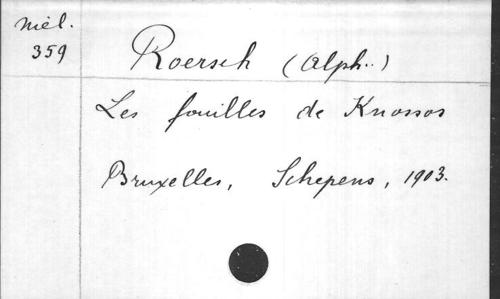 Mél.
359
Roersch (Alph..)
Les fouilles de Knossos
Bruxelles, Schepens, 1903.